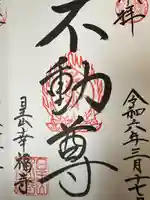 拝
令和六年三月十七
不動尊
幸福寺